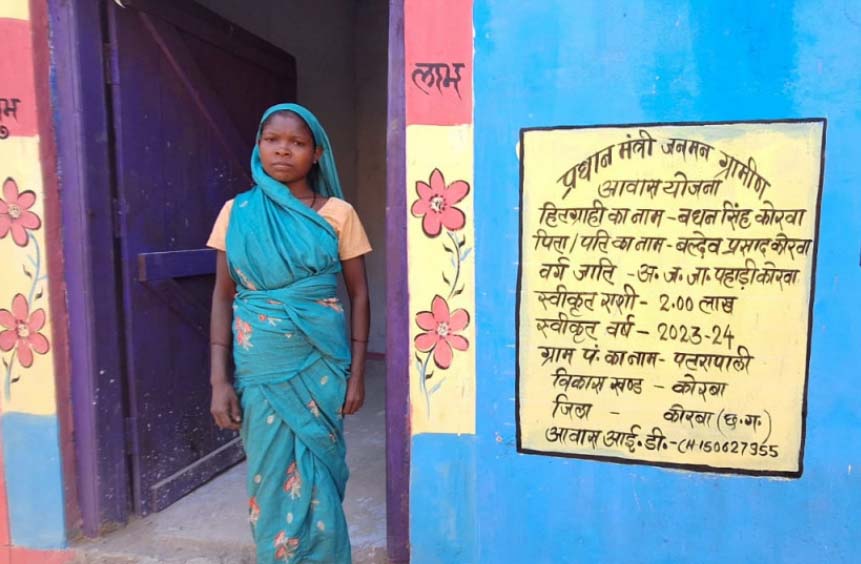 लाभ
प्रधान मंत्री जनमन ग्रामीण
आवास योजना
हितग्राही का नाम - बधन सिंह कोरवा
पिता / पति का नाम - बल्देव प्रसाद कोरवा
वर्ग जाति - अ. ज. जा. पहाड़ी कोरवा
स्वीकृत राशी - 2.00 लाख
स्वीकृत वर्ष - 2023-24
ग्राम पं. का नाम - पतरापाली
विकास खण्ड - कोरबा
जिला - कोरबा (छ.ग.)
आवास आई.डी. - CH150627955